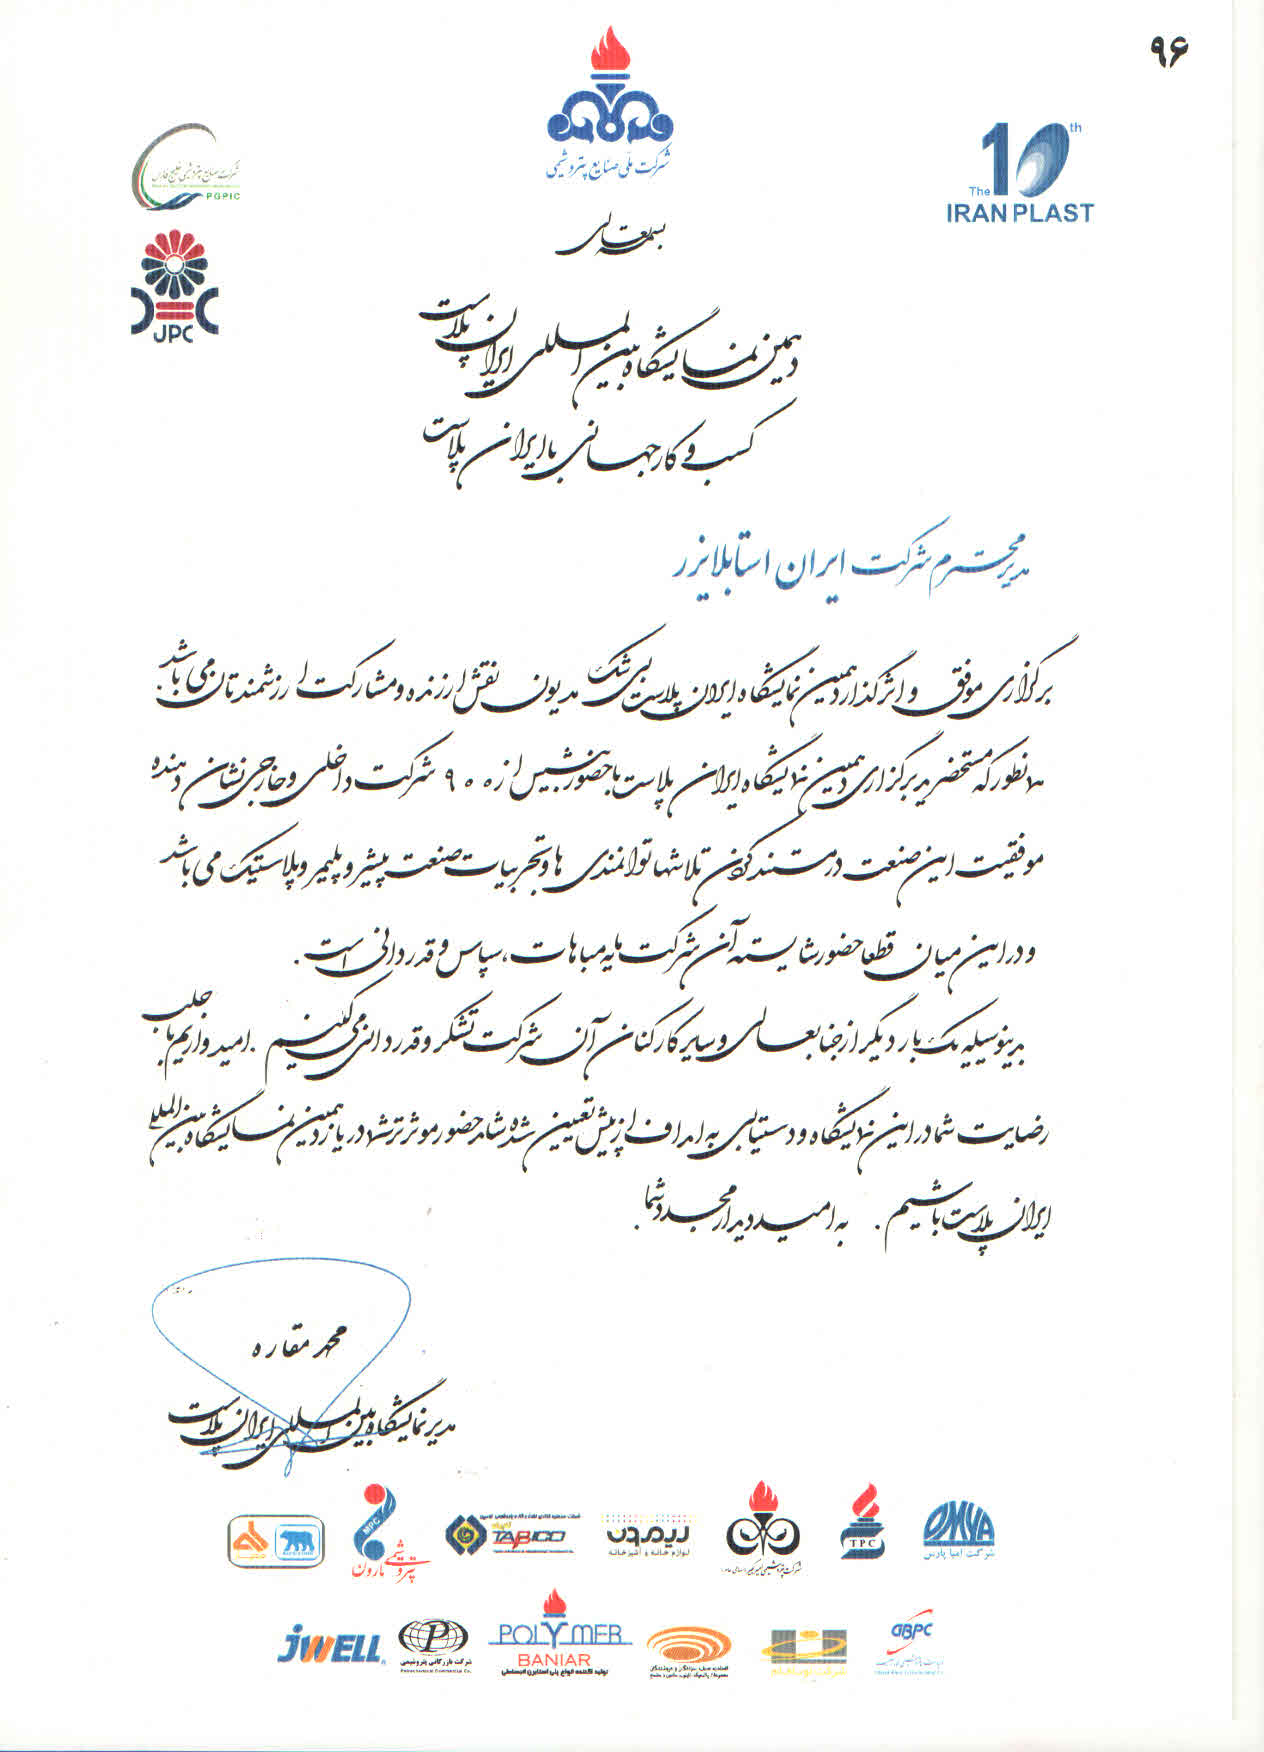 ۹۶
شرکت ملی صنایع پتروشیمی
شرکت صنایع پتروشیمی خلیج فارس
PGPIC
The 10th
IRAN PLAST
JPC
بسمه تعالی
دهمین نمایشگاه بین المللی ایران پلاست
کسب و کار جهانی با ایران پلاست
مدیر محترم شرکت ایران استابلایزر
برگزاری موفق و اثرگذار دهمین نمایشگاه ایران پلاست بی شک مدیون نقش ارزنده و مشارکت ارزشمندتان می باشد.
همانطور که مستحضرید برگزاری دهمین نمایشگاه ایران پلاست با حضور بیش از ۹۰۰ شرکت داخلی و خارجی نشان دهنده
موفقیت این صنعت در مستند کردن تلاشها توانمندی ها و تجربیات صنعت پیشرو پلیمر و پلاستیک می باشد
و در این میان قطعا حضور شایسته آن شرکت مایه مباهات، سپاس و قدردانی است.
بدینوسیله یک بار دیگر از جنابعالی و سایر کارکنان آن شرکت تشکر و قدردانی می کنیم. امیدواریم با جلب
رضایت شما در این نمایشگاه و دستیابی به اهداف از پیش تعیین شده شاهد حضور موثرتر شما در یازدهمین نمایشگاه بین المللی
ایران پلاست باشیم. به امید دیدار مجدد شما.
محمد مقاره
مدیر نمایشگاه بین المللی ایران پلاست
MPC
پتروشیمی مارون
TABICO
لیمون
لوازم خانه و آشپزخانه
شرکت پتروشیمی امیرکبیر (سهامی عام)
TPC
OMYA
شرکت امیا پارس
JWELL
P
شرکت بازرگانی پتروشیمی
Petrochemical Commercial Co.
POLYMER
BANIAR
تولید کننده انواع پلی استایرن انبساطی
GBPC